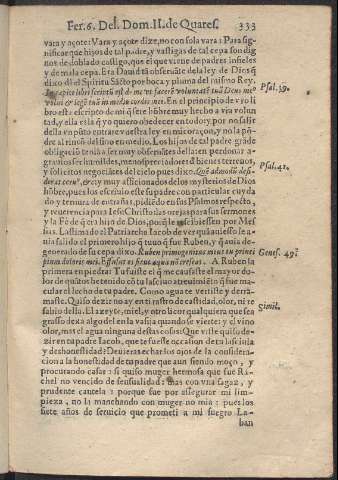 Fer. 6. Del. Dom. II. de Quares. 333
vara y açote: Vara y açote dize, no con sola vara: Para sig-
nificar que hijos de tal padre, y vastigas de tal cepa son dig
nos de doblado castigo, que el que viene de padres infieles
y de mala cepa. Era Dauid tã obseruãte dela ley de Dios q̃
dizo dl el Spiritu Sãcto por boca y pluma del mismo Rey.
In capite libri scriptũ est de me vt facerẽ voluntatẽ tuã Deus meo
volui & legẽ tuã in medio cordis mei. En el principio de vro li
bro està escripto de mi q̃ sere hõbre muy hecho a vra volun
tad, y ella es la q̃ yo quiero obedecer en todo y por no salir
della vn pũto entrare vuestra ley en mi coraçon, y no la põ-
dre al rincon del sino en medio. Los hijos de tal padre grãde
obligacio tenía a ser muy obseruãtes
Psal. 39.
agrauios ser humildes, menospreciadores d bienes terrenos,
y solicitos negociãtes del cielo pues dixo. Quẽ admodũ desi-
derat ceruus, &c. y muy afficionados de los mysterios de Dios
Psal. 41.
hõbre, pues los escriuio este su padre con particular cuyda
do y ternura de entrañas, pidiẽdo en sus Psalmos respecto,
y reuerencia para Iesu Christo: las orejas para sus sermones
y la Fè de q̃ era hijo de Dios, pa q̃ le rescibiessen por Mes
sias. Lastimado el Patriarcha Iacob de ver quã auiesso le a-
uia salido el primero hijo q̃ tuuo q̃ fue Ruben, y q̃ auia de-
generado de su cepa dixo. Ruben primogenitus meus tu princi
pium doloris mei. Effusus es sicut aqua nõ crescas. A Ruben la
Genes. 49.
primera en piedra: Tu fuiste el q̃ me causaste el mayor do-
lor de quãtos he tenido cõ tu lasciuo atreuimiẽto q̃ fue ma
cular el lecho de tu padre. Como agua te vertiste y derra-
maste. Quiso dezir no ay en ti rastro de castidad, olor, ni re
sabio della. El azeyte, miel, y otro licor qualquiera que sea
Simil.
grasso dexa algo del en la vasija quando se vierte: y el vino
olor, mas el agua ninguna destas cosas: Que viste quiso de-
zir en tu padre Iacob, que te fuesse no occasion de tu lasciuia
y deshonestidad? Deuieras echar los ojos de la considera-
cion a la honestidad de tu padre que aun siendo moço, y
procurando casar: si quiso muger hermosa que fue Ra-
chel no vencido de sensualidad: mas con vna sagaz, y
prudente cautela: porque fue por assegurar mi lim-
pieza, no la manchando con muger no mia: pues los
siete años de seruicio que prometi a mi suegro La-
ban